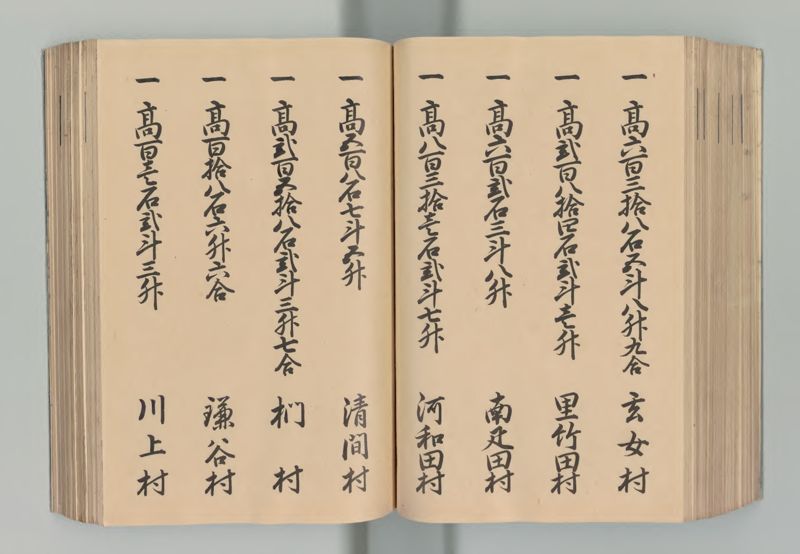 一 高六百三拾八石五斗八升九合 玄女村
一 高弐百八拾四石弐斗壱升 里竹田村
一 高六百弐石三斗八升 南疋田村
一 高八百三拾壱石弐斗七升 河和田村
一 高五百八石七斗五升 清間村
一 高弐百五拾八石弐斗三升七合 椚村
一 高百拾八石六升六合 瑓谷村
一 高百壱石弐斗三升 川上村